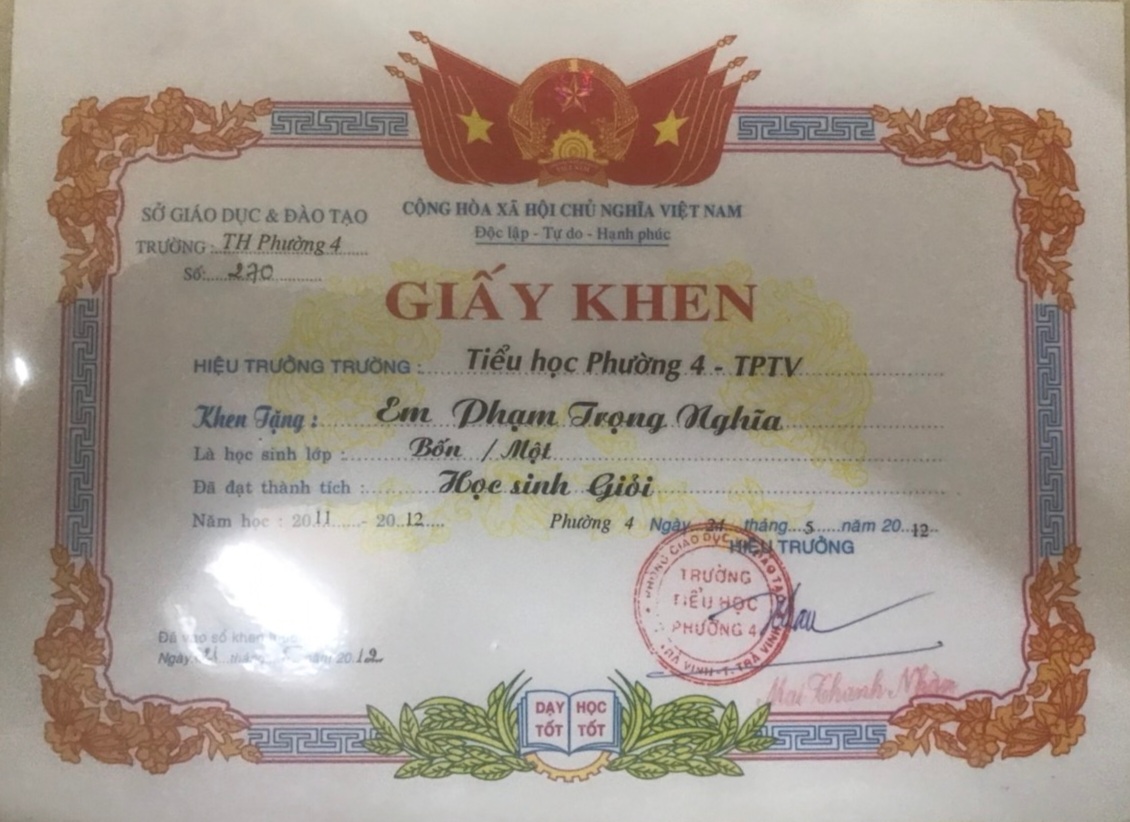 SỞ GIÁO DỤC & ĐÀO TẠO
TRƯỜNG: TH Phường 4
Số: 270
CỘNG HÒA XÃ HỘI CHỦ NGHĨA VIỆT NAM
Độc lập - Tự do - Hạnh phúc
GIẤY KHEN
HIỆU TRƯỞNG TRƯỜNG: Tiểu học Phường 4 - TPTV
Khen Tặng: Em Phạm Trọng Nghĩa
Là học sinh lớp: Bốn / Một
Đã đạt thành tích: Học sinh Giỏi
Năm học: 2011 - 2012
Phường 4 Ngày 24 tháng 5 năm 2012
HIỆU TRƯỞNG
TRƯỜNG
TIỂU HỌC
PHƯỜNG 4
Mai Thanh Nhàn
Đã vào sổ khen
Ngày 24 tháng 5 năm 2012
DẠY TỐT
HỌC TỐT